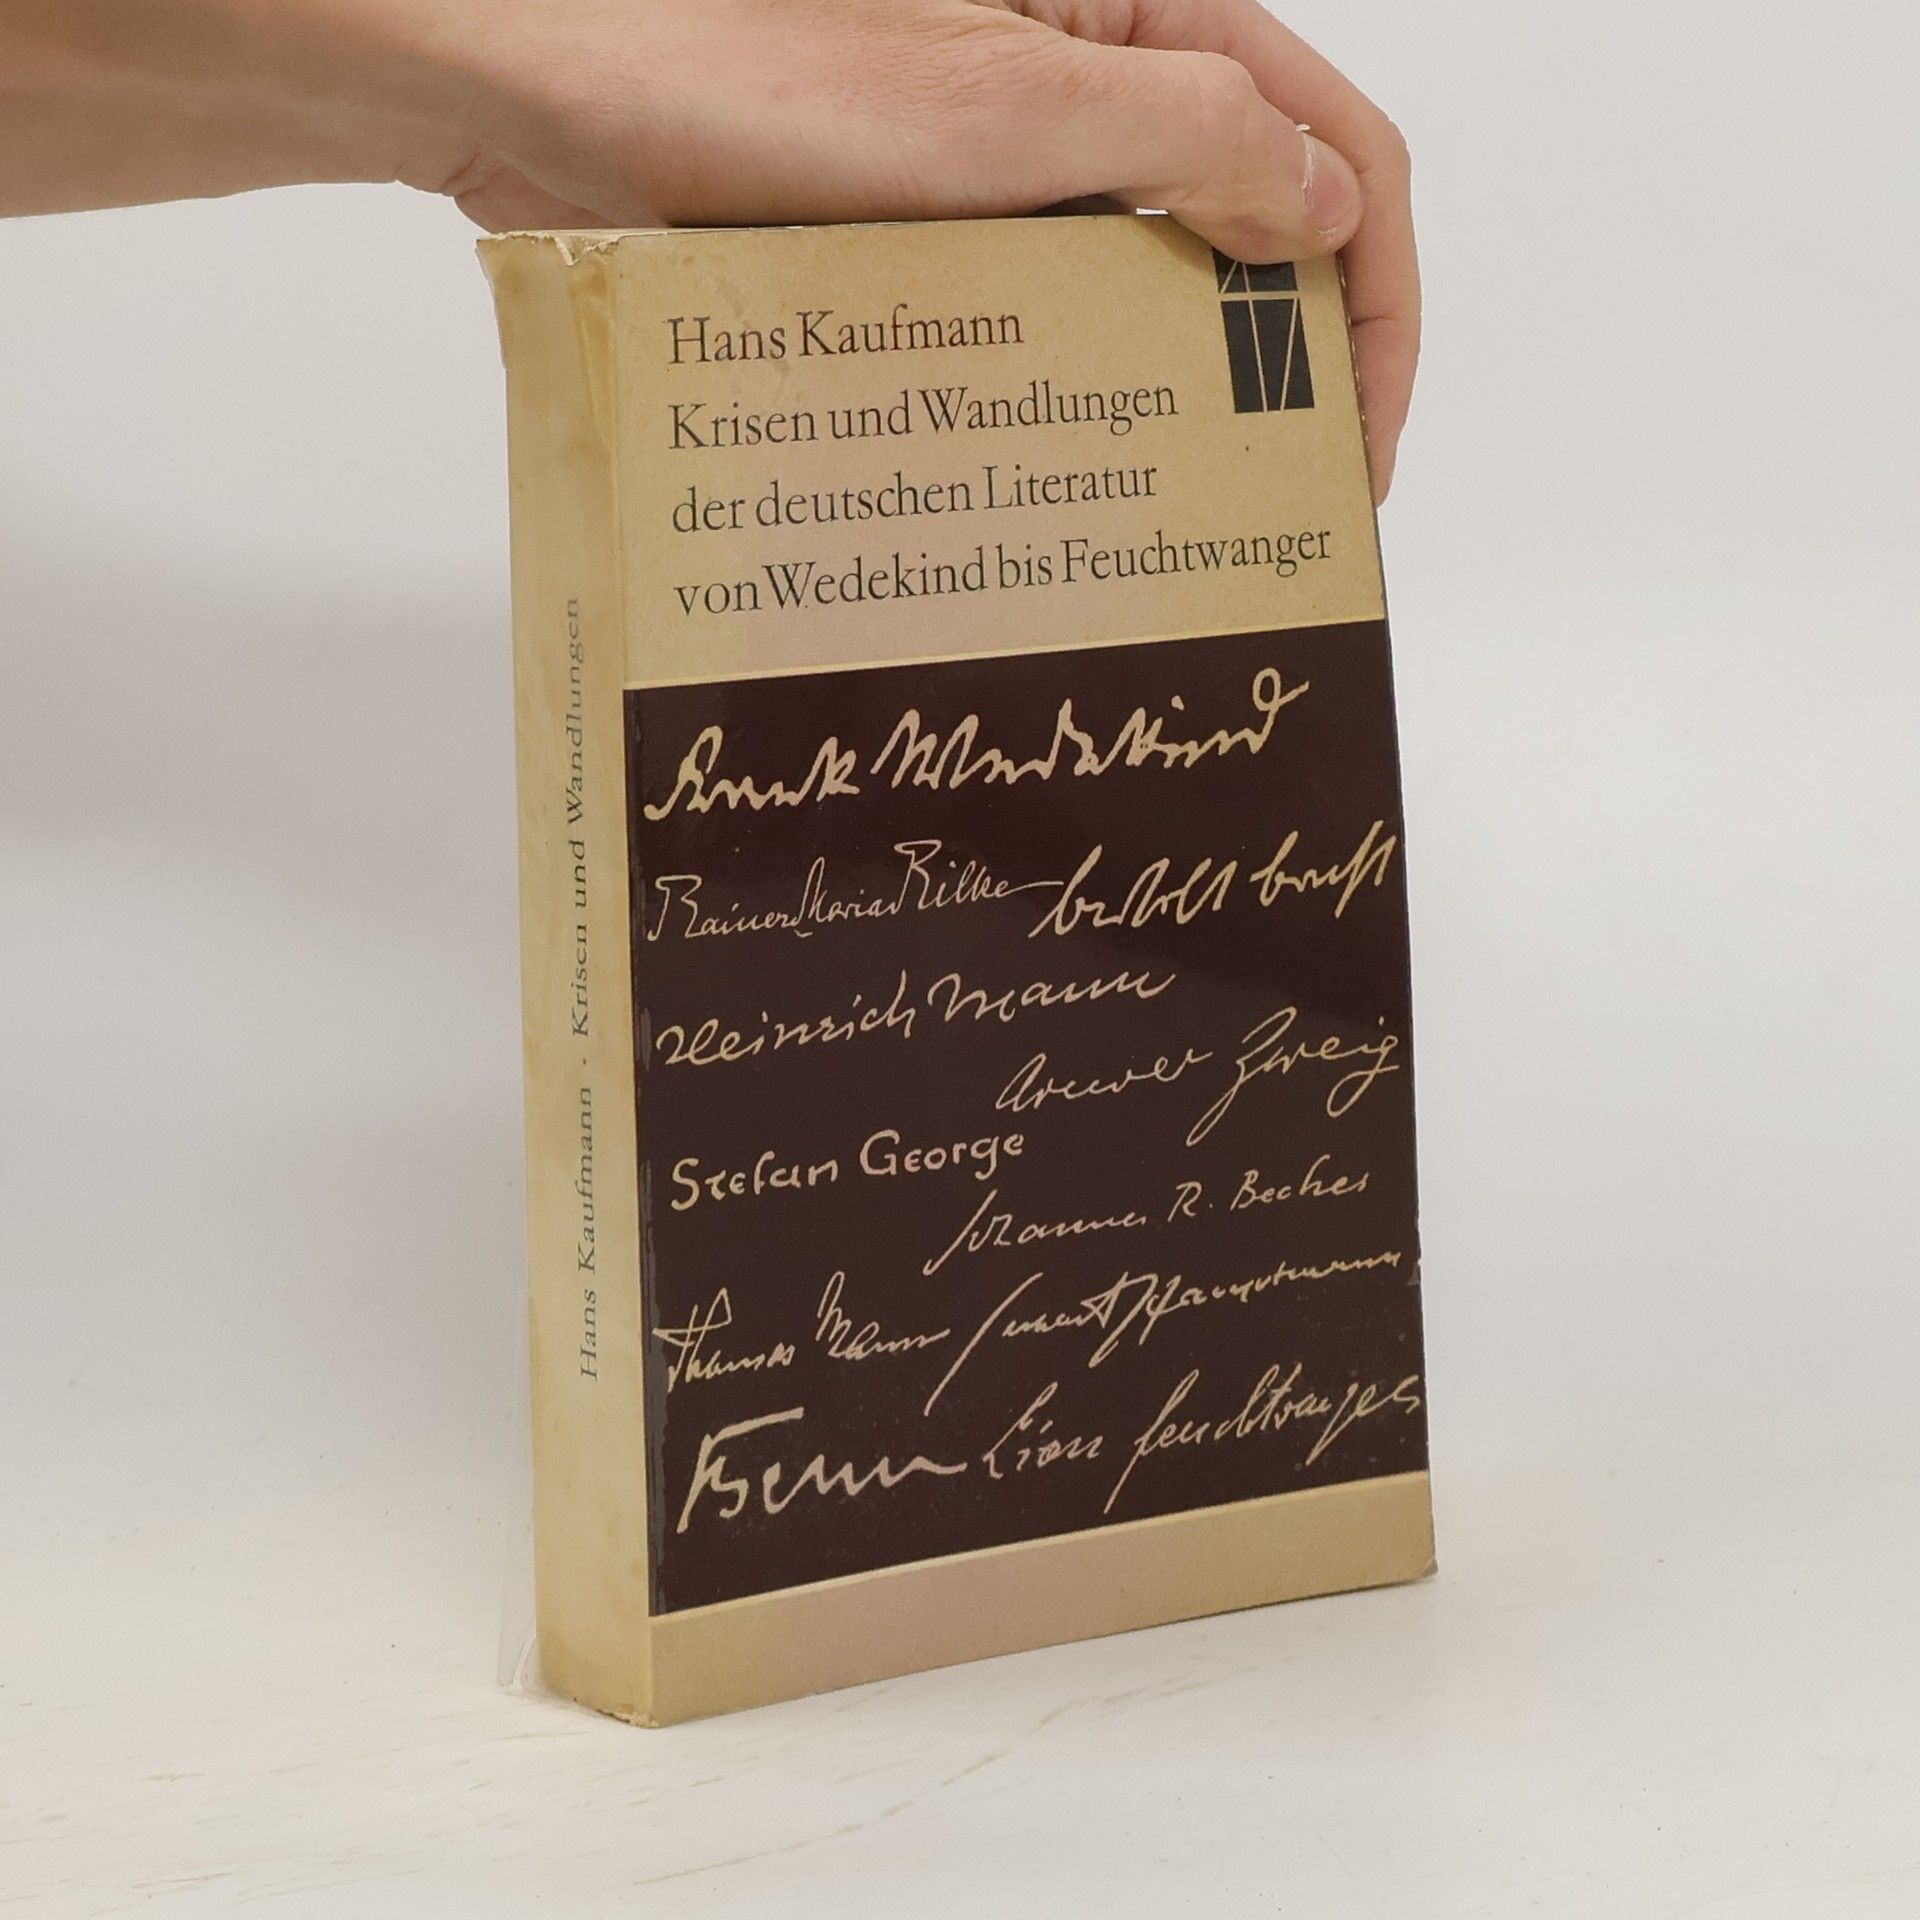 Hans Kaufmann
Krisen und Wandlungen
der deutschen Literatur
von Wedekind bis Feuchtwanger
Frank Wedekind
Rainer Maria Rilke
bertolt brecht
Heinrich Mann
Arnold Zweig
Stefan George
Johannes R. Becher
Thomas Mann
Gerhart Hauptmann
Benn
Lion Feuchtwanger
Hans Kaufmann · Krisen und Wandlungen